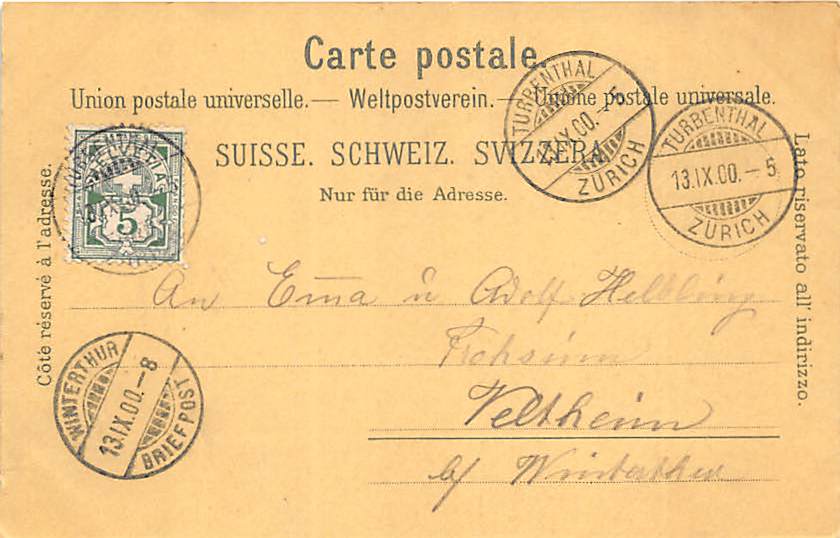 Carte postale.
Union postale universelle. — Weltpostverein. — Unione postale universale.
SUISSE. SCHWEIZ. SVIZZERA.
Nur für die Adresse.
Côté réservé à l'adresse.
Lato riservato all' indirizzo.
HELVETIA
5
TURBENTHAL
IX.00.-5
ZÜRICH
TURBENTHAL
13.IX.00.-5
ZÜRICH
An Emma u Adolf Helbling
Veltheim
b/ Winterthur
WINTERTHUR
13.IX.00.-8
BRIEFPOST